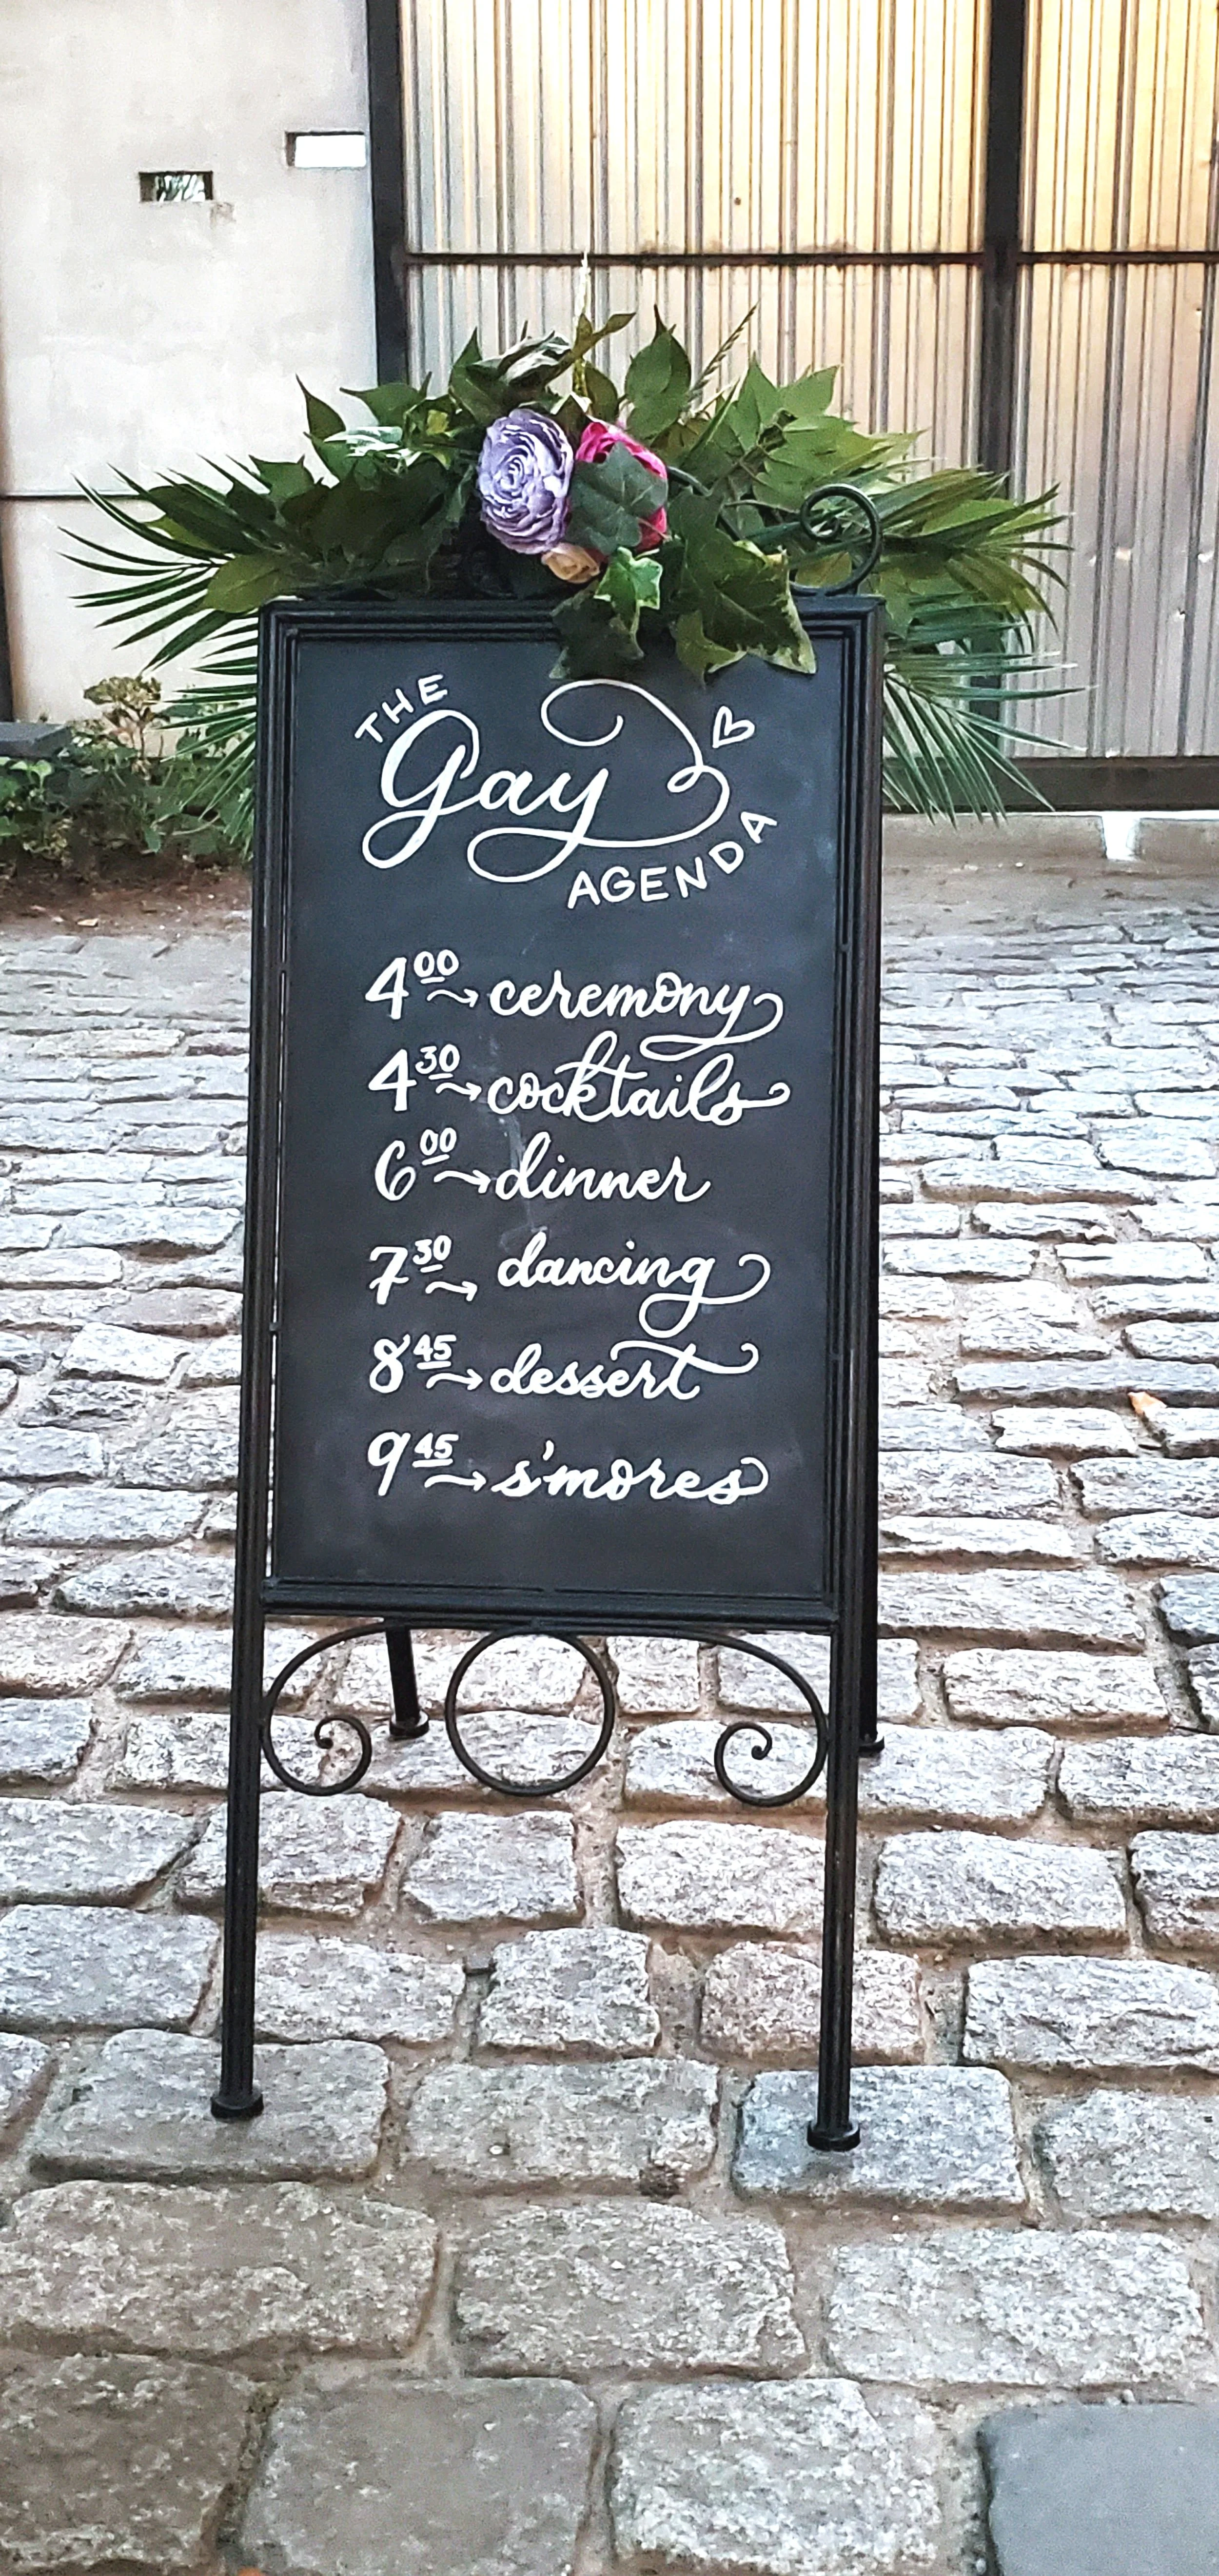 THE
Gay
AGENDA
400 → ceremony
430 → cocktails
600 → dinner
730 → dancing
845 → dessert
945 → s'mores